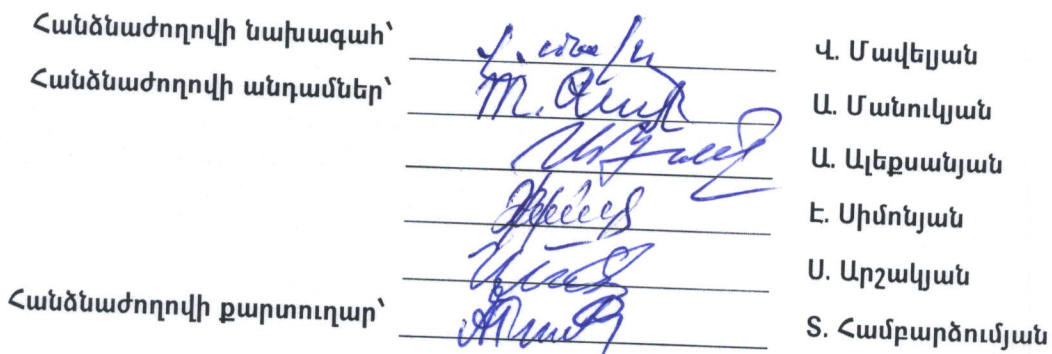 Հանձնաժողովի նախագահ՝ Վ. Մավելյան
Հանձնաժողովի անդամներ՝ Ա. Մանուկյան
Ա. Ալեքսանյան
Է. Սիմոնյան
Ս. Արշակյան
Հանձնաժողովի քարտուղար՝ Տ. Համբարձումյան